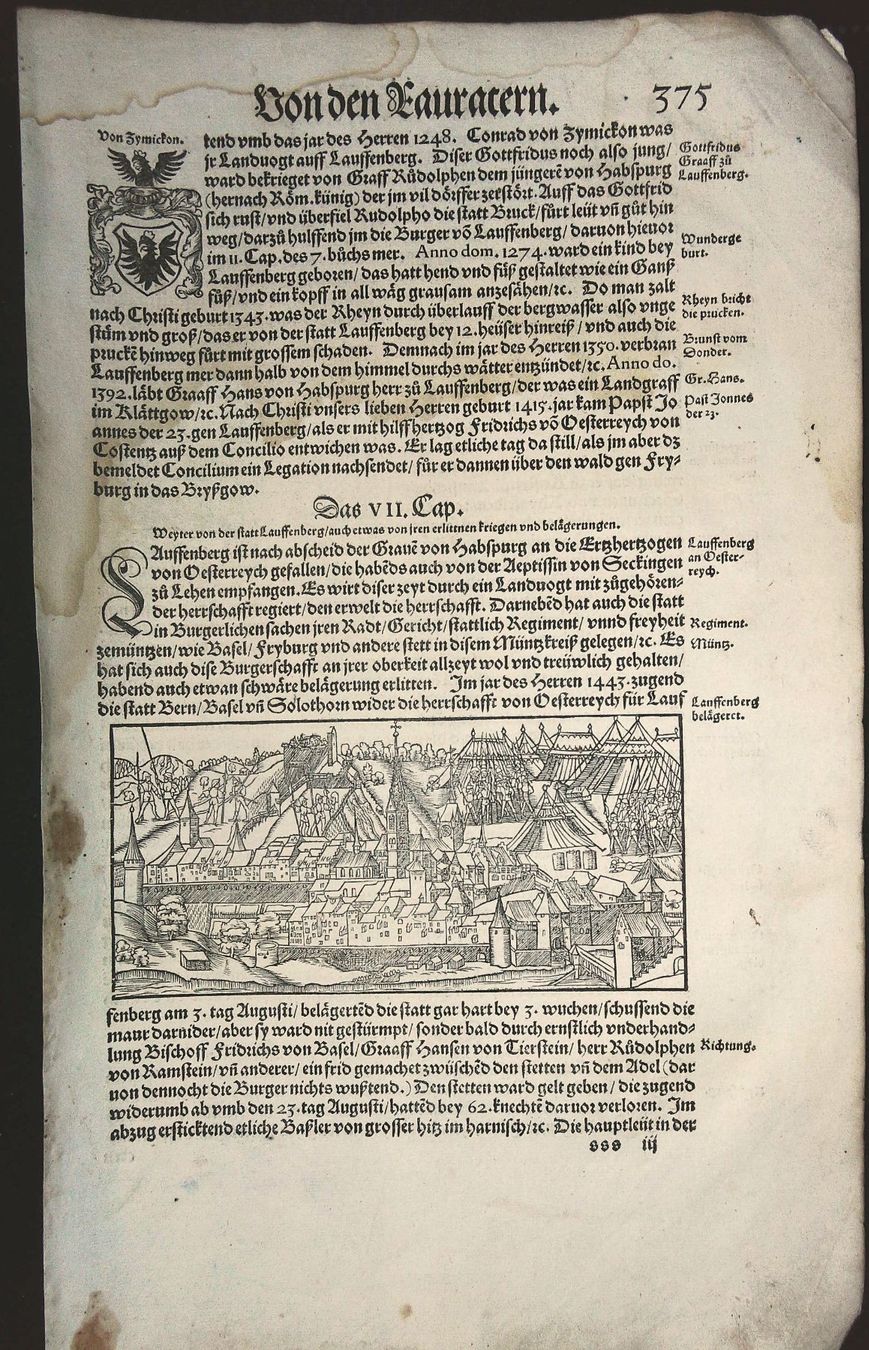 Von den Rauracern. 375
Von Zymickon.
tend vmb das jar des Herren 1248. Conrad von Zymickon was
jr Landuogt auff Lauffenberg. Diser Gottfridus noch also jung/
ward bekrieget von Graff Růdolphen dem jüngerē von Habspurg
(hernach Röm. künig) der jm vil dörffer zerstört. Auff das Gottfrid
sich rust/vnd überfiel Rudolpho die statt Bruck/fürt leüt vñ gůt hin
weg/darzů hulffend jm die Burger vō Lauffenberg/daruon hieuor
im 11. Cap. des 7. bůchs mer. Anno dom. 1274. ward ein kind bey
Lauffenberg geboren/das hatt hend vnd füß gestaltet wie ein Ganß
füß/vnd ein kopff in all wäg grausam anzesähen/ꝛc. Do man zalt
nach Christi geburt 1343. was der Rheyn durch überlauff der bergwasser also vnge
stüm vnd groß/das er von der statt Lauffenberg bey 12. heüser hinreiß/vnd auch die
pruckē hinweg fürt mit grossem schaden. Demnach im jar des Herren 1350. verbran
Lauffenberg mer dann halb von dem himmel durchs wätter entzündet/ꝛc. Anno do.
1392. läbt Graaff Hans von Habspurg herr zů Lauffenberg/der was ein Landgraff
im Klättgow/ꝛc. Nach Christi vnsers lieben Herren geburt 1415. jar kam Papst Jo
annes der 23. gen Lauffenberg/als er mit hilff hertzog Fridrichs vō Oesterreych von
Costentz auß dem Concilio entwichen was. Er lag etliche tag da still/als jm aber dz
bemeldet Concilium ein Legation nachsendet/für er dannen über den wald gen Fry⸗
burg in das Bryßgow.
Gottfridus
Graaff zů
Lauffenberg.
Wunderge
burt.
Rheyn bricht
die prucken.
Brunst vom
Donder.
Gr. Hans.
Past Jonnes
der 23.
Das VII. Cap.
Weyter von der statt Lauffenberg/auch etwas von jren erlittnen kriegen vnd belägerungen.
LAuffenberg ist nach abscheid der Grauē von Habspurg an die Ertzhertzogen
von Oesterreych gefallen/die habēds auch von der Aeptissin von Seckingen
zů Lehen empfangen. Es wirt diser zeyt durch ein Landuogt mit zůgehören⸗
der herrschafft regiert/den erwelt die herrschafft. Darnebēd hat auch die statt
in Burgerlichen sachen jren Radt/Gericht/stattlich Regiment/vnnd freyheit
zemüntzen/wie Basel/Fryburg vnd andere stett in disem Müntzkreiß gelegen/ꝛc. Es
hat sich auch dise Burgerschafft an jrer oberkeit allzeyt wol vnd treüwlich gehalten/
habend auch etwan schwäre belägerung erlitten. Im jar des Herren 1443. zugend
die statt Bern/Basel vñ Solothorn wider die herrschafft von Oesterreych für Lauf
Lauffenberg
an Oester⸗
reych.
Regiment.
Müntz.
Lauffenberg
belägeret.
fenberg am 3. tag Augusti/belägertēd die statt gar hart bey 3. wuchen/schussend die
maur darnider/aber sy ward nit gestürmpt/sonder bald durch ernstlich vnderhand⸗
lung Bischoff Fridrichs von Basel/Graaff Hansen von Tierstein/herr Růdolphen
von Ramstein/vñ anderer/ein frid gemachet zwüschēd den stetten vñ dem Adel (dar
uon dennocht die Burger nichts wußtend.) Den stetten ward gelt geben/die zugend
widerumb ab vmb den 23. tag Augusti/hattēd bey 62. knechtē daruor verloren. Im
abzug ersticktend etliche Baßler von grosser hitz im harnisch/ꝛc. Die hauptleüt in der
Richtung.
sss iij